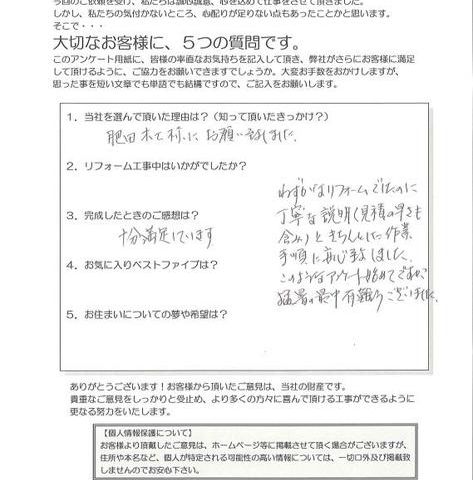 今回のご依頼を受け、私たちは誠心誠意、心を込めて仕事をさせて頂きました。
しかし、私たちの気付かないところ、心配りが足りない点もあったことかと思います。
そこで・・・
大切なお客様に、５つの質問です。
このアンケート用紙に、皆様の率直なお気持ちを記入して頂き、弊社がさらにお客様に満足
して頂けるように、ご協力をお願いできますでしょうか。大変お手数をおかけしますが、
思った事を短い文章でも単語でも結構ですので、ご記入をお願いします。
１．当社を選んで頂いた理由は？（知って頂いたきっかけ？）
肥田木工様にお願い致しました。
２．リフォーム工事中はいかがでしたか？
３．完成したときのご感想は？
十分満足しています
４．お気に入りベストファイブは？
５．お住まいについての夢や希望は？
わずかなリフォームでしたのに
丁寧な説明（見積の早さも
含み）ときちんとした作業
手順に感心しました。
このようなアンケート始めてですが
猛暑の最中有難うございました。
ありがとうございます！お客様から頂いたご意見は、当社の財産です。
貴重なご意見をしっかりと受止め、より多くの方々に喜んで頂ける工事ができるように
更なる努力をいたします。
【個人情報保護について】
お客様より頂戴したご意見は、ホームページ等に掲載させて頂く場合がございますが、
住所や本名など、個人が特定される可能性の高い情報については、一切口外及び掲載致
しませんのでお安心下さい。